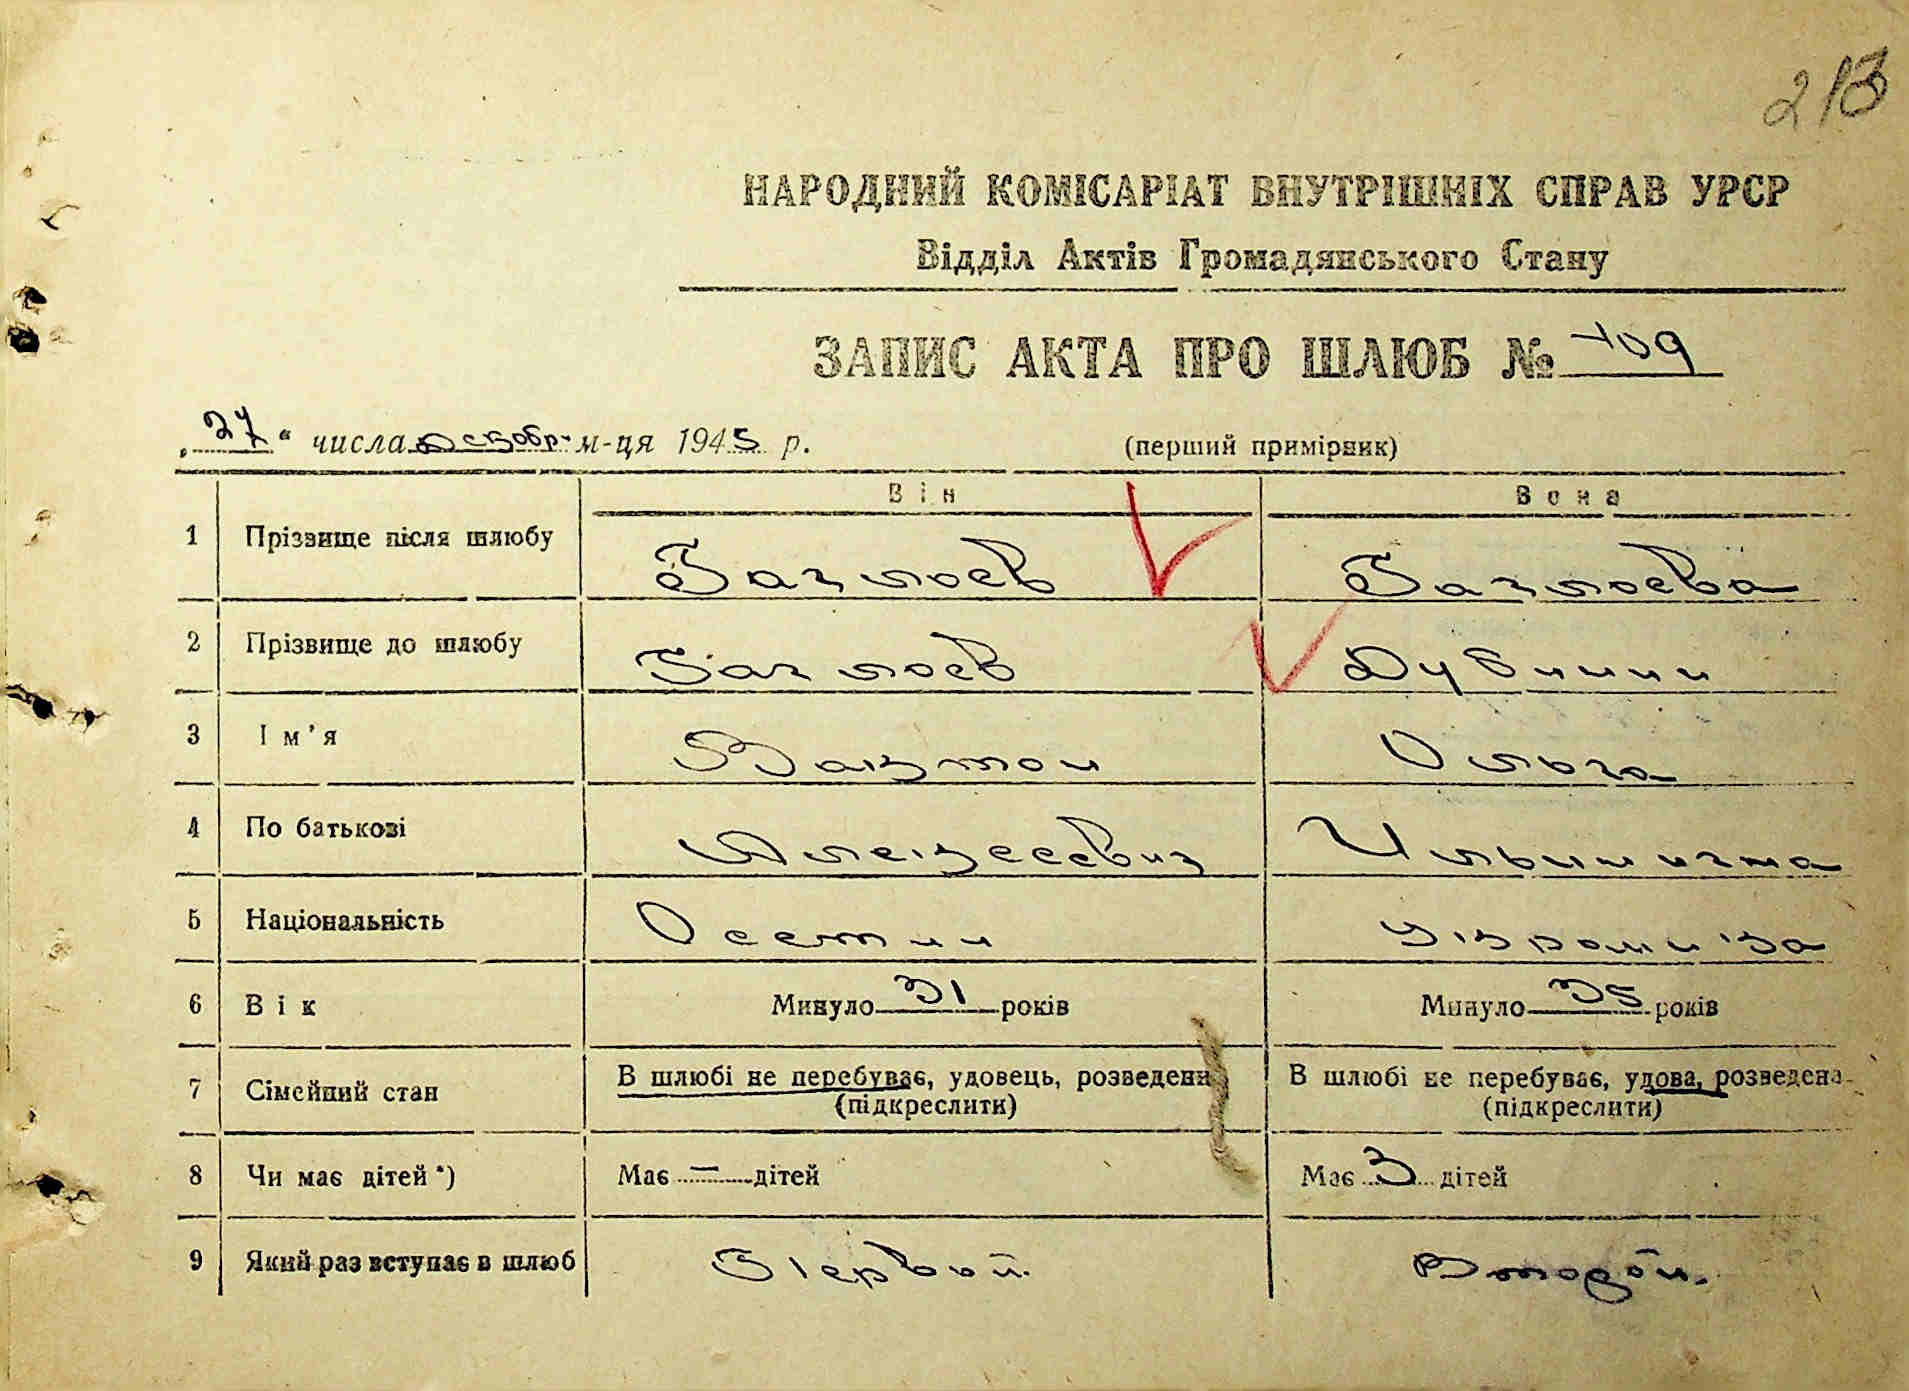 213
НАРОДНИЙ КОМІСАРІАТ ВНУТРІШНІХ СПРАВ УРСР
Відділ Актів Громадянського Стану
ЗАПИС АКТА ПРО ШЛЮБ № 109
„27“ числа Декабр- м-ця 1945 р. (перший примірник)
Він Вона
1 Прізвище після шлюбу Гаглоев Гаглоева
2 Прізвище до шлюбу Гаглоев
3 Ім'я Ольга
4 По батькові Алексеевич Ильинична
5 Національність Осетин Украинка
6 Вік Минуло 31 років Минуло 35 років
7 Сімейний стан В шлюбі не перебуває, удовець, розведений (підкреслити) В шлюбі не перебуває, удова, розведена (підкреслити)
8 Чи має дітей *) Має — дітей Має 3 дітей
9 Який раз вступає в шлюб Первой Второй.